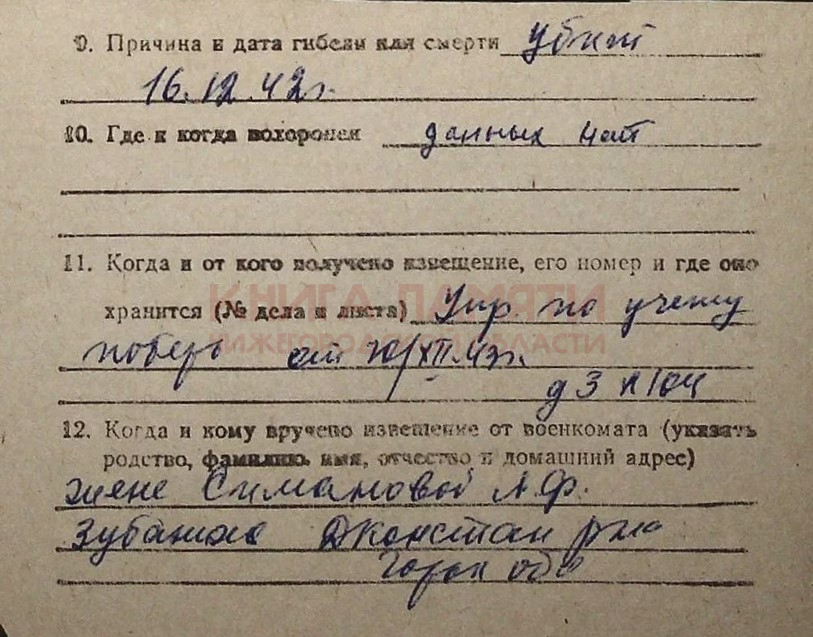 9. Причина и дата гибели или смерти убит
16.12.42г.
10. Где и когда похоронен данных нет
11. Когда и от кого получено извещение, его номер и где оно
хранится (№ дела и листа) Упр. по учету
КНИГА ПАМЯТИ
НИЖЕГОРОДСКОЙ ОБЛАСТИ
потерь от /XII.43г.
д 3 л 104
12. Когда и кому вручено извещение от военкомата (указать
родство, фамилию, имя, отчество и домашний адрес)
жене Симановой А.Ф.
Д Констан
Горьк обл